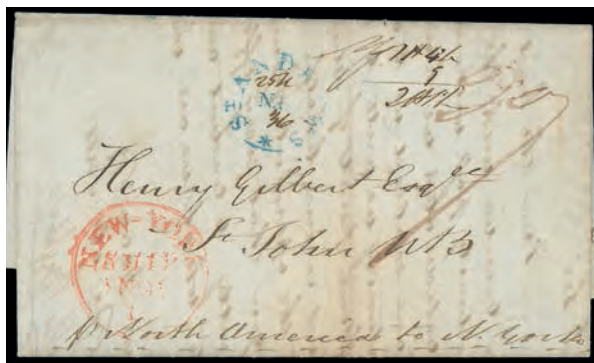 ST ANDREWS
25th
N
36
9
Henry Gilbert Esqre
St John NB
NEW-YORK
SHIP
NOV
pr North America to N York